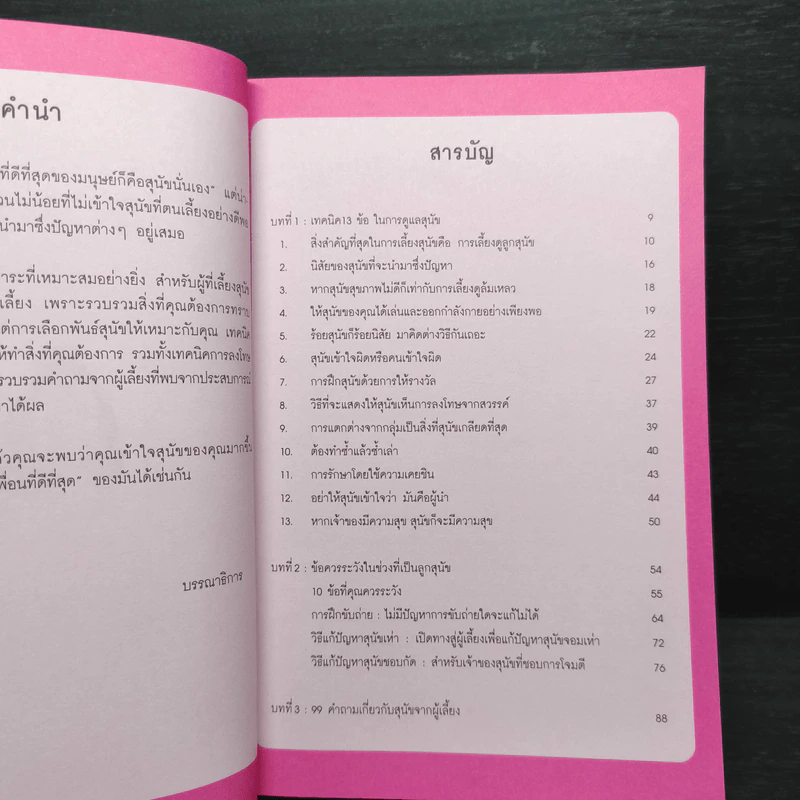 คำนำ
ที่ดีที่สุดของมนุษย์ก็คือสุนัขนั่นเอง” แต่น่า-
วนไม่น้อยที่ไม่เข้าใจสุนัขที่ตนเลี้ยงอย่างดีพอ
นำมาซึ่งปัญหาต่างๆ อยู่เสมอ
าระที่เหมาะสมอย่างยิ่ง สำหรับผู้ที่เลี้ยงสุนัข
เลี้ยง เพราะรวบรวมสิ่งที่คุณต้องการทราบ
ต่การเลือกพันธ์สุนัขให้เหมาะกับคุณ เทคนิค
ห้ทำสิ่งที่คุณต้องการ รวมทั้งเทคนิคการลงโทษ
รวบรวมคำถามจากผู้เลี้ยงที่พบจากประสบการณ์
าได้ผล
ล้วคุณจะพบว่าคุณเข้าใจสุนัขของคุณมากขึ้น
พื่อนที่ดีที่สุด” ของมันได้เช่นกัน
บรรณาธิการ
สารบัญ
บทที่ 1 : เทคนิค13 ข้อ ในการดูแลสุนัข 9
1. สิ่งสำคัญที่สุดในการเลี้ยงสุนัขคือ การเลี้ยงดูลูกสุนัข 10
2. นิสัยของสุนัขที่จะนำมาซึ่งปัญหา 16
3. หากสุนัขสุขภาพไม่ดีก็เท่ากับการเลี้ยงดูล้มเหลว 18
4. ให้สุนัขของคุณได้เล่นและออกกำลังกายอย่างเพียงพอ 19
5. ร้อยสุนัขก็ร้อยนิสัย มาคิดต่างวิธีกันเถอะ 22
6. สุนัขเข้าใจผิดหรือคนเข้าใจผิด 24
7. การฝึกสุนัขด้วยการให้รางวัล 27
8. วิธีที่จะแสดงให้สุนัขเห็นการลงโทษจากสวรรค์ 37
9. การแตกต่างจากกลุ่มเป็นสิ่งที่สุนัขเกลียดที่สุด 39
10. ต้องทำซ้ำแล้วซ้ำเล่า 40
11. การรักษาโดยใช้ความเคยชิน 43
12. อย่าให้สุนัขเข้าใจว่า มันคือผู้นำ 44
13. หากเจ้าของมีความสุข สุนัขก็จะมีความสุข 50
บทที่ 2 : ข้อควรระวังในช่วงที่เป็นลูกสุนัข 54
10 ข้อที่คุณควรระวัง 55
การฝึกขับถ่าย : ไม่มีปัญหาการขับถ่ายใดจะแก้ไม่ได้ 64
วิธีแก้ปัญหาสุนัขเห่า : เปิดทางสู่ผู้เลี้ยงเพื่อแก้ปัญหาสุนัขจอมเห่า 72
วิธีแก้ปัญหาสุนัขชอบกัด : สำหรับเจ้าของสุนัขที่ชอบการโจมตี 76
บทที่ 3 : 99 คำถามเกี่ยวกับสุนัขจากผู้เลี้ยง 88